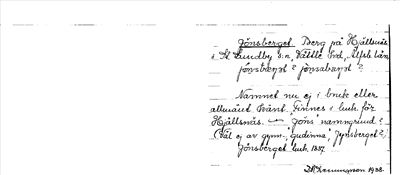 Jönsberget. Berg på Hjällsnäs
i St. Lundby s:n, Vättle hrd, Älfsb. län
jönsbærjət? jönsabærjət?
Namnet nu ej i bruk eller
allmänt känt. Finnes i luk. för
Hjällsnäs. "Jöns" namngrund?
(Väl ej av gymn. "gudinna", Jynsberget?)
Jönsberget luk. 1887.
1938.